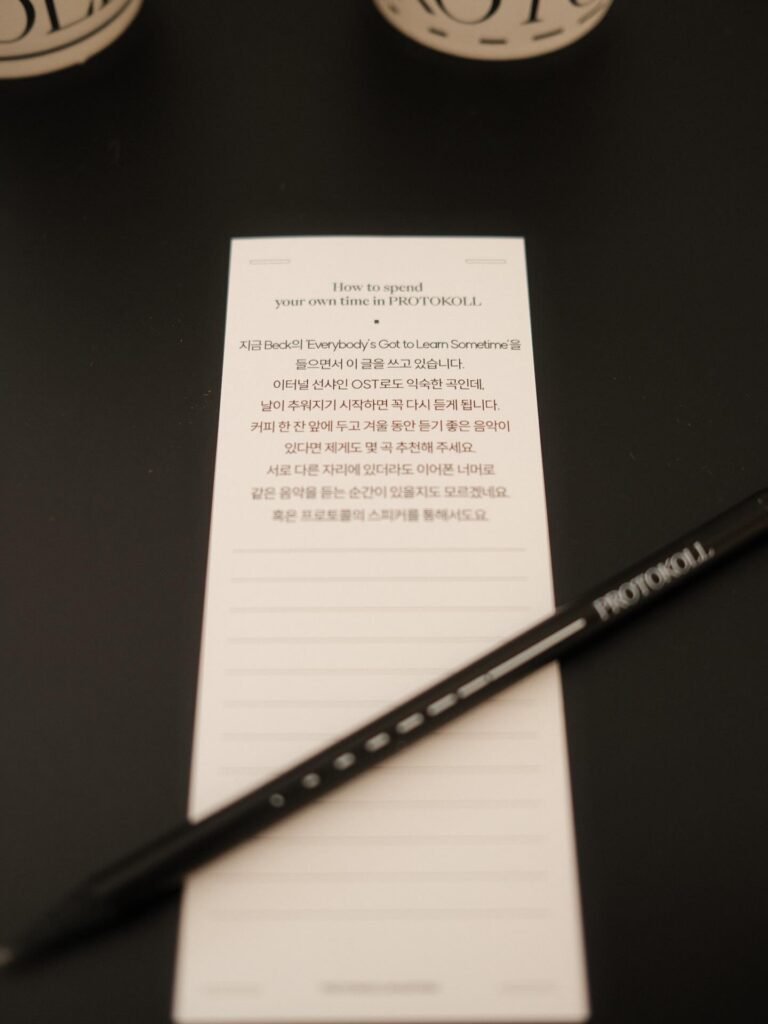 How to spend
your own time in PROTOKOLL
지금 Beck의 'Everybody's Got to Learn Sometime'을
들으면서 이 글을 쓰고 있습니다.
이터널 선샤인 OST로도 익숙한 곡인데,
날이 추워지기 시작하면 꼭 다시 듣게 됩니다.
커피 한 잔 앞에 두고 겨울 동안 듣기 좋은 음악이
있다면 제게도 몇 곡 추천해 주세요.
서로 다른 자리에 있더라도 이어폰 너머로
같은 음악을 듣는 순간이 있을지도 모르겠네요.
혹은 프로토콜의 스피커를 통해서도요.
PROTOKOLL